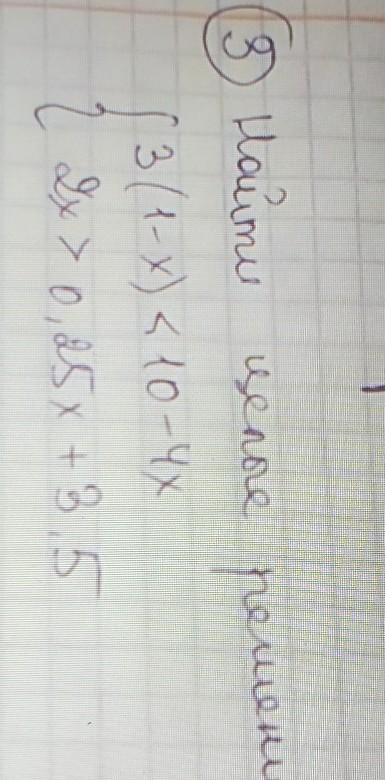 9 Найти целое решени
{ 3(1-x) < 10-4x
2x > 0,25x + 3,5